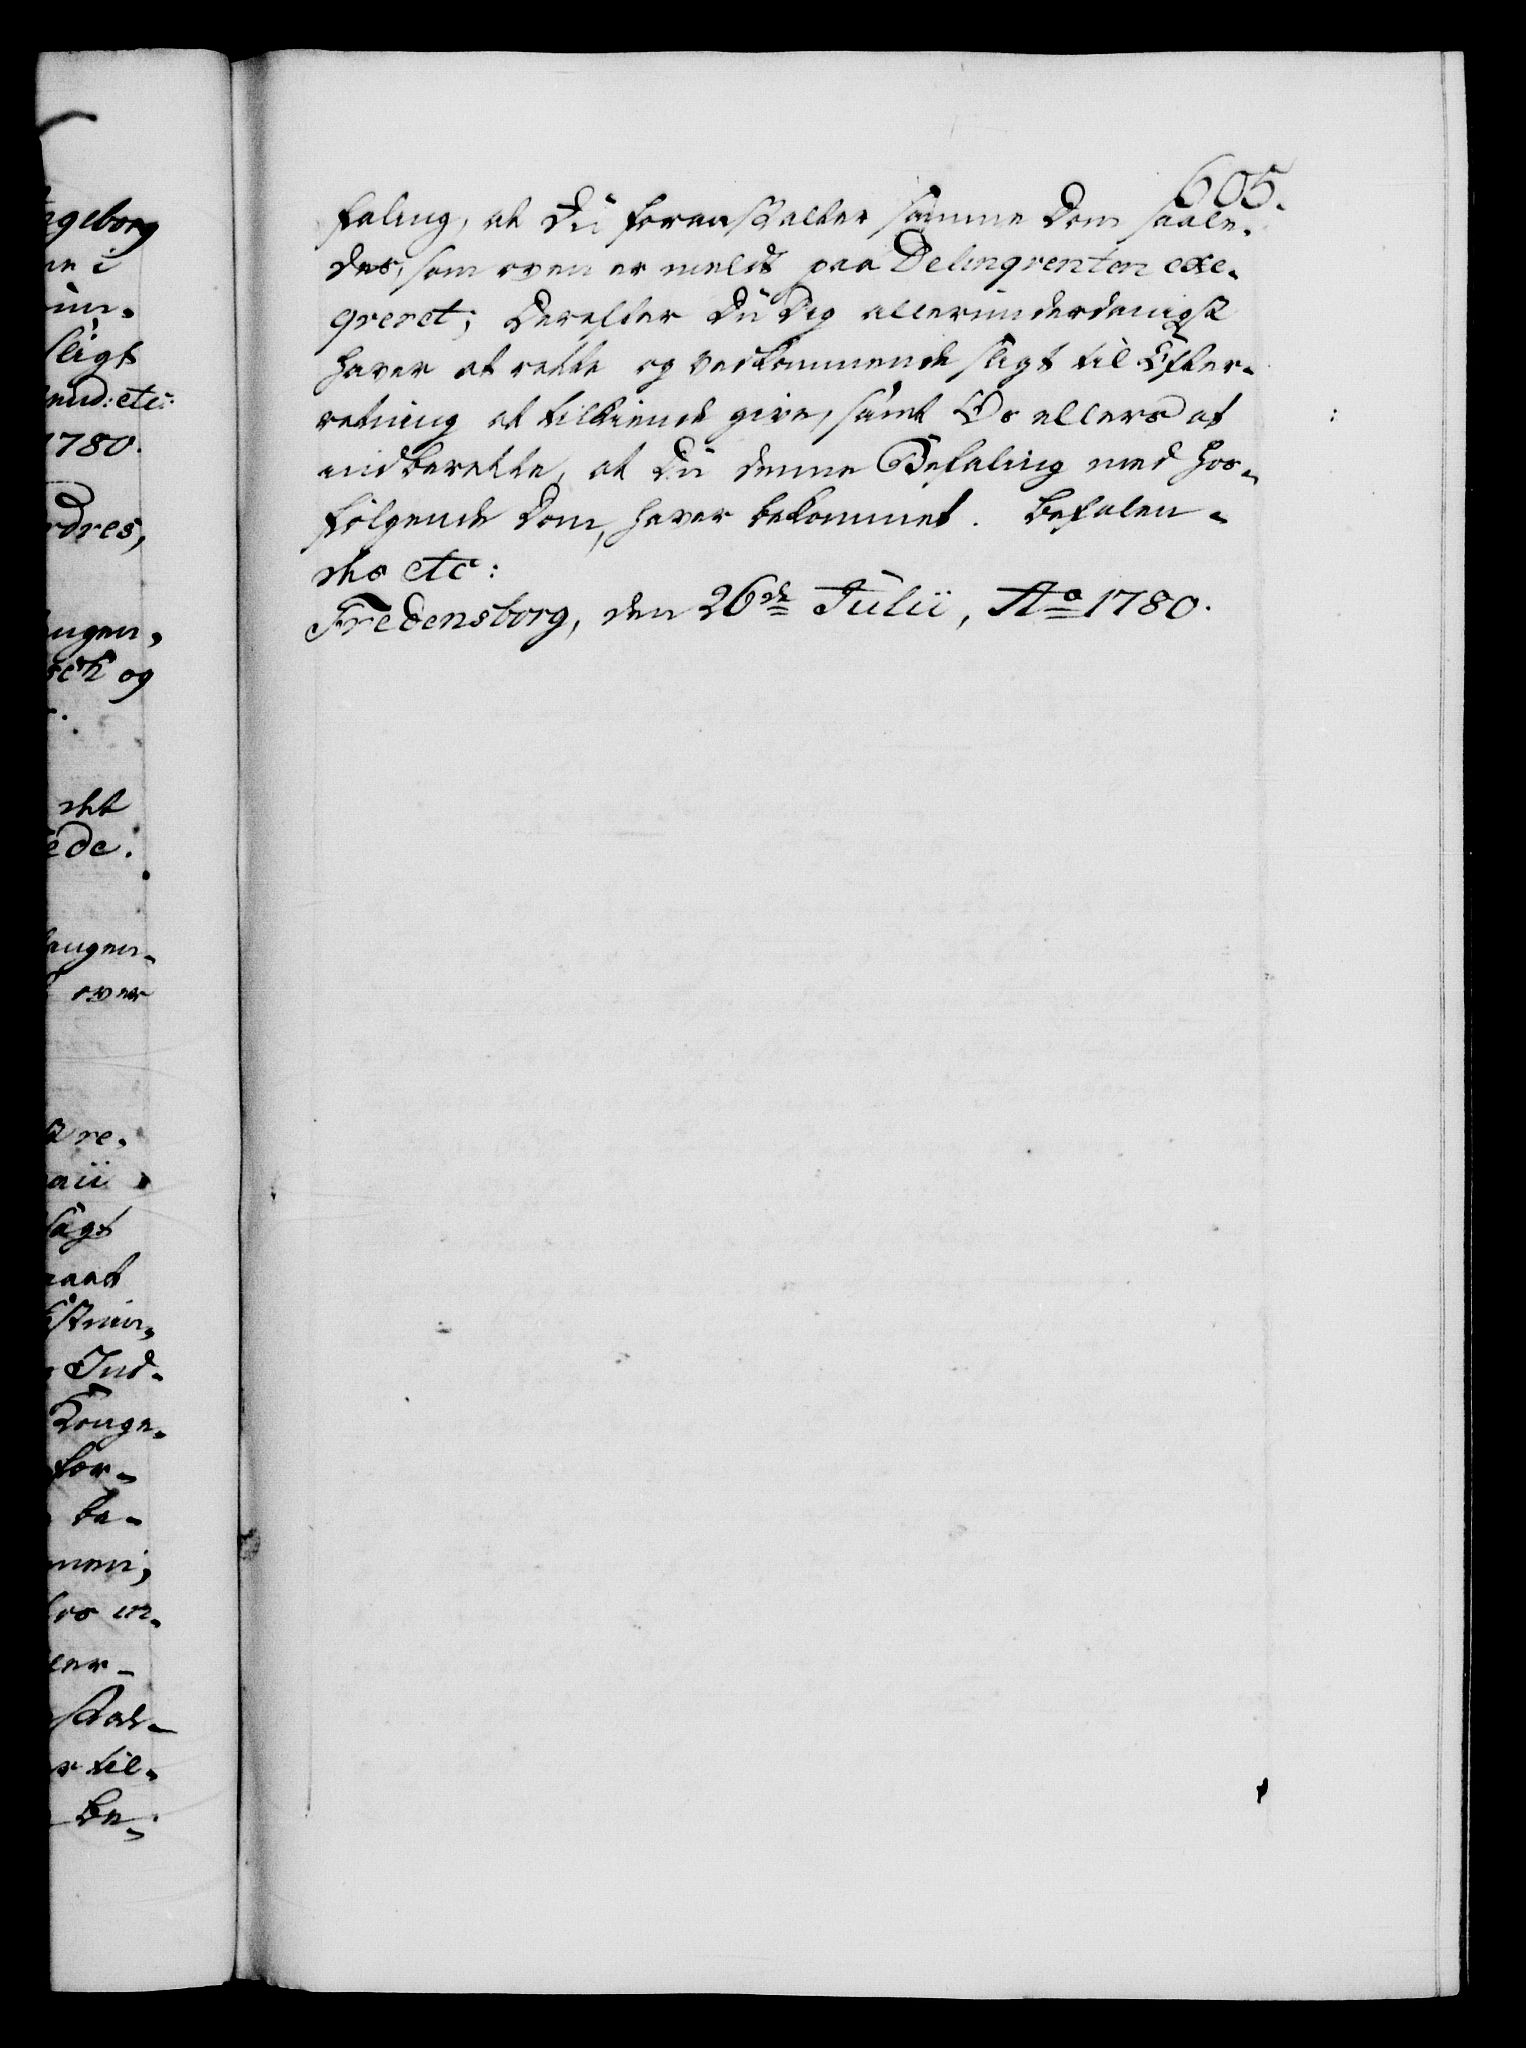 605.
faling, at Du foranstalter samme Dom saale-
des, som oven er meldt paa Delinqventen exe-
qveret; Derefter Du Dig allerunderdanigst
haver at rette og vedkommende sligt til Efter-
retning at tilkiende give, samt Os ellers at
indberette, at Du denne Befaling med hos-
følgende Dom, haver bekommet. Befalen-
des etc:
Fredensborg, den 26de Julii, Ao 1780.
ngeborg
sligt
1780.
rdres,
og
det
over
re-
Ind-
Konge-
for-
be-
til-
Be-